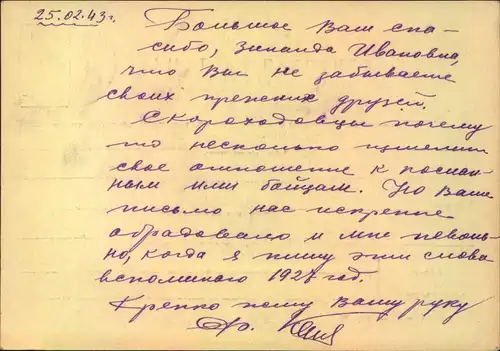 25.02.43 г.
Большое Вам спа-
сибо, Зинаида Ивановна,
что Вы не забываете
своих прежних друзей.
Скороходовцы почему
то несколько изменили
свое отношение к послан-
ным ими бойцам. Но Ваше
письмо нас искренне
обрадовало и мне неволь-
но, когда я пишу эти слова
вспомнился 1927 год.
Крепко жму Вашу руку